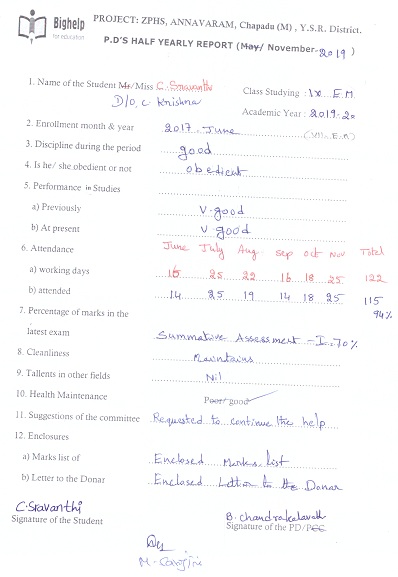 Bighelp
for education
PROJECT: ZPHS, ANNAVARAM, Chapadu (M), Y.S.R. District.
P.D'S HALF YEARLY REPORT (May/ November-2019)
1. Name of the Student Mr/Miss C. Sravanthi Class Studying : IX E.M
D/o. C. Krishna Academic Year : 2019-20
2. Enrollment month & year 2017. June (VII. E.M)
3. Discipline during the period good
4. Is he/ she obedient or not obedient
5. Performance in Studies
a) Previously V-good
b) At present V-good
6. Attendance June July Aug sep oct Nov Total
a) working days 16 25 22 16 18 25 122
b) attended 14 25 19 14 18 25 115
94%
7. Percentage of marks in the
latest exam Summative Assessment - I. 70%
8. Cleanliness Maintains
9. Tallents in other fields Nil
10. Health Maintenance Poor/ good
11. Suggestions of the committee Requested to continue the help
12. Enclosures
a) Marks list of Enclosed Marks list
b) Letter to the Donar Enclosed Letter to the Donar
C. Sravanthi B. Chandrakalavath
Signature of the Student Signature of the PD/PCC